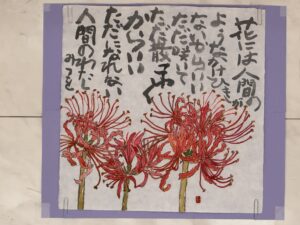 花には人間の
ようなかけひきが
ないからいい
ただ咲いて
ただ散ってゆく
からいい
ただになれない
人間のわたし
みつを